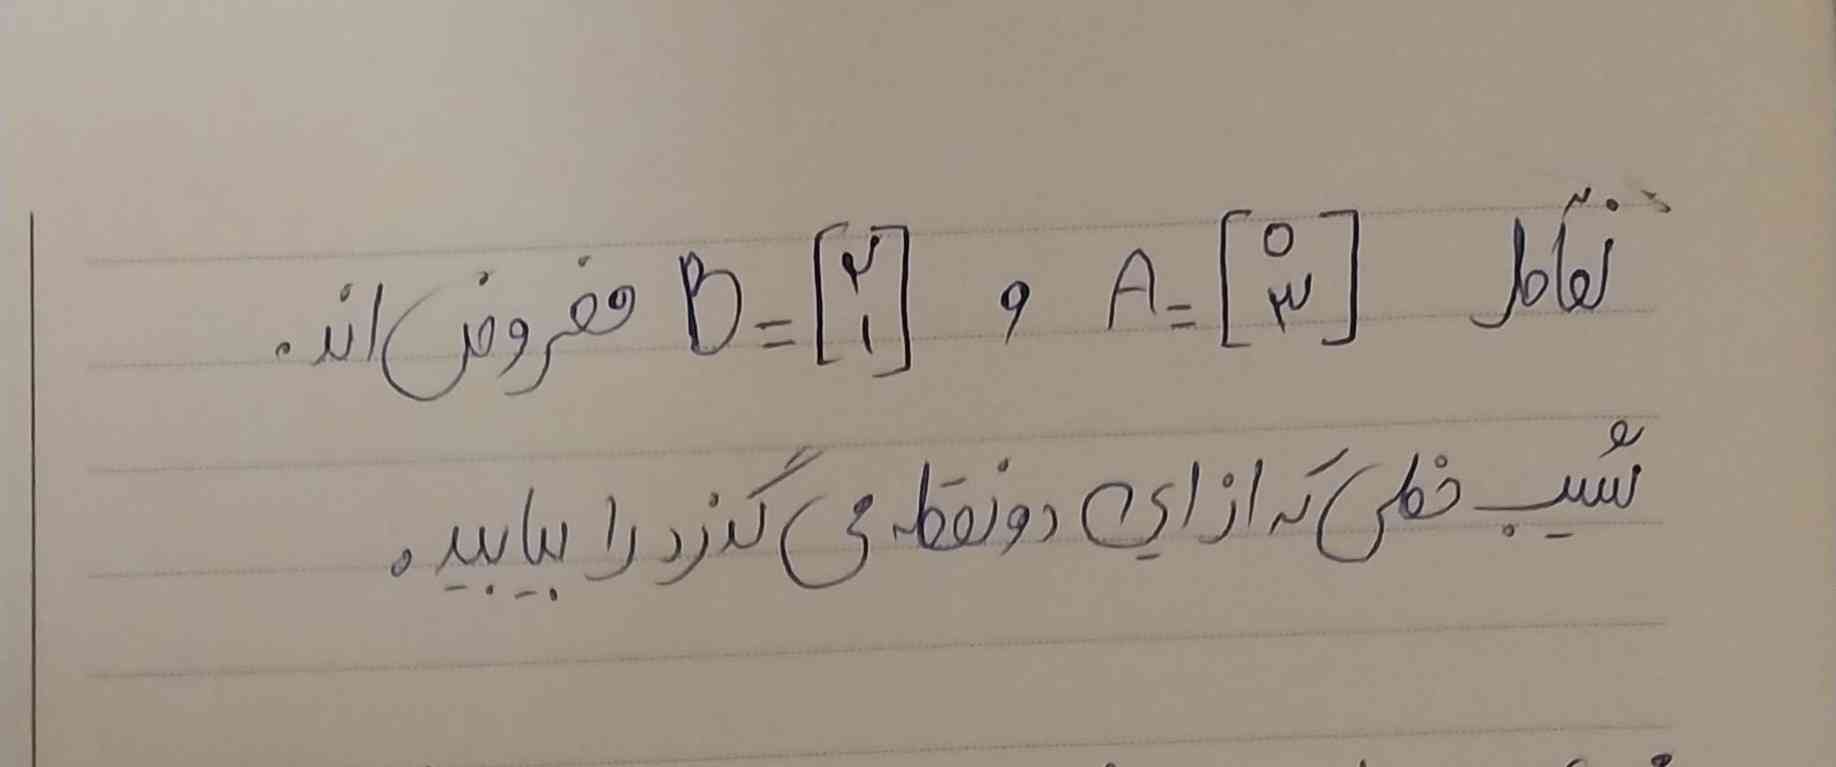 نقاط A = [۵ ۳] و B = [۲ ۱] مفروض اند.
شیب خطی که از این دو نقطه می گذرد را بیابید.